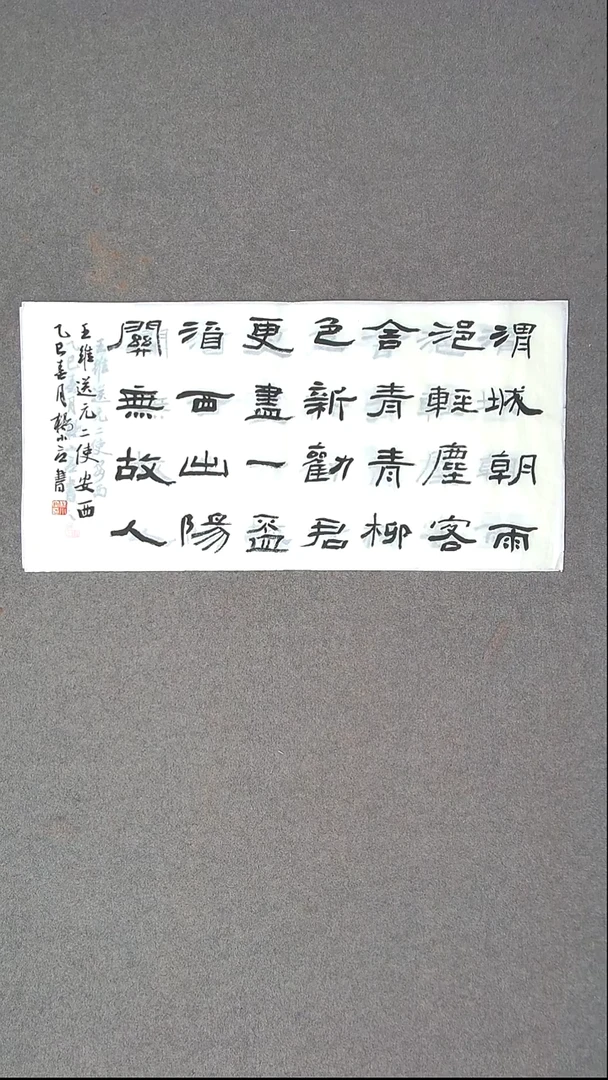 渭城朝雨
浥輕塵客
舍青青柳
色新勸君
更盡一盃
酒西出陽
關無故人
王維送元二使安西
乙巳春月楊小書